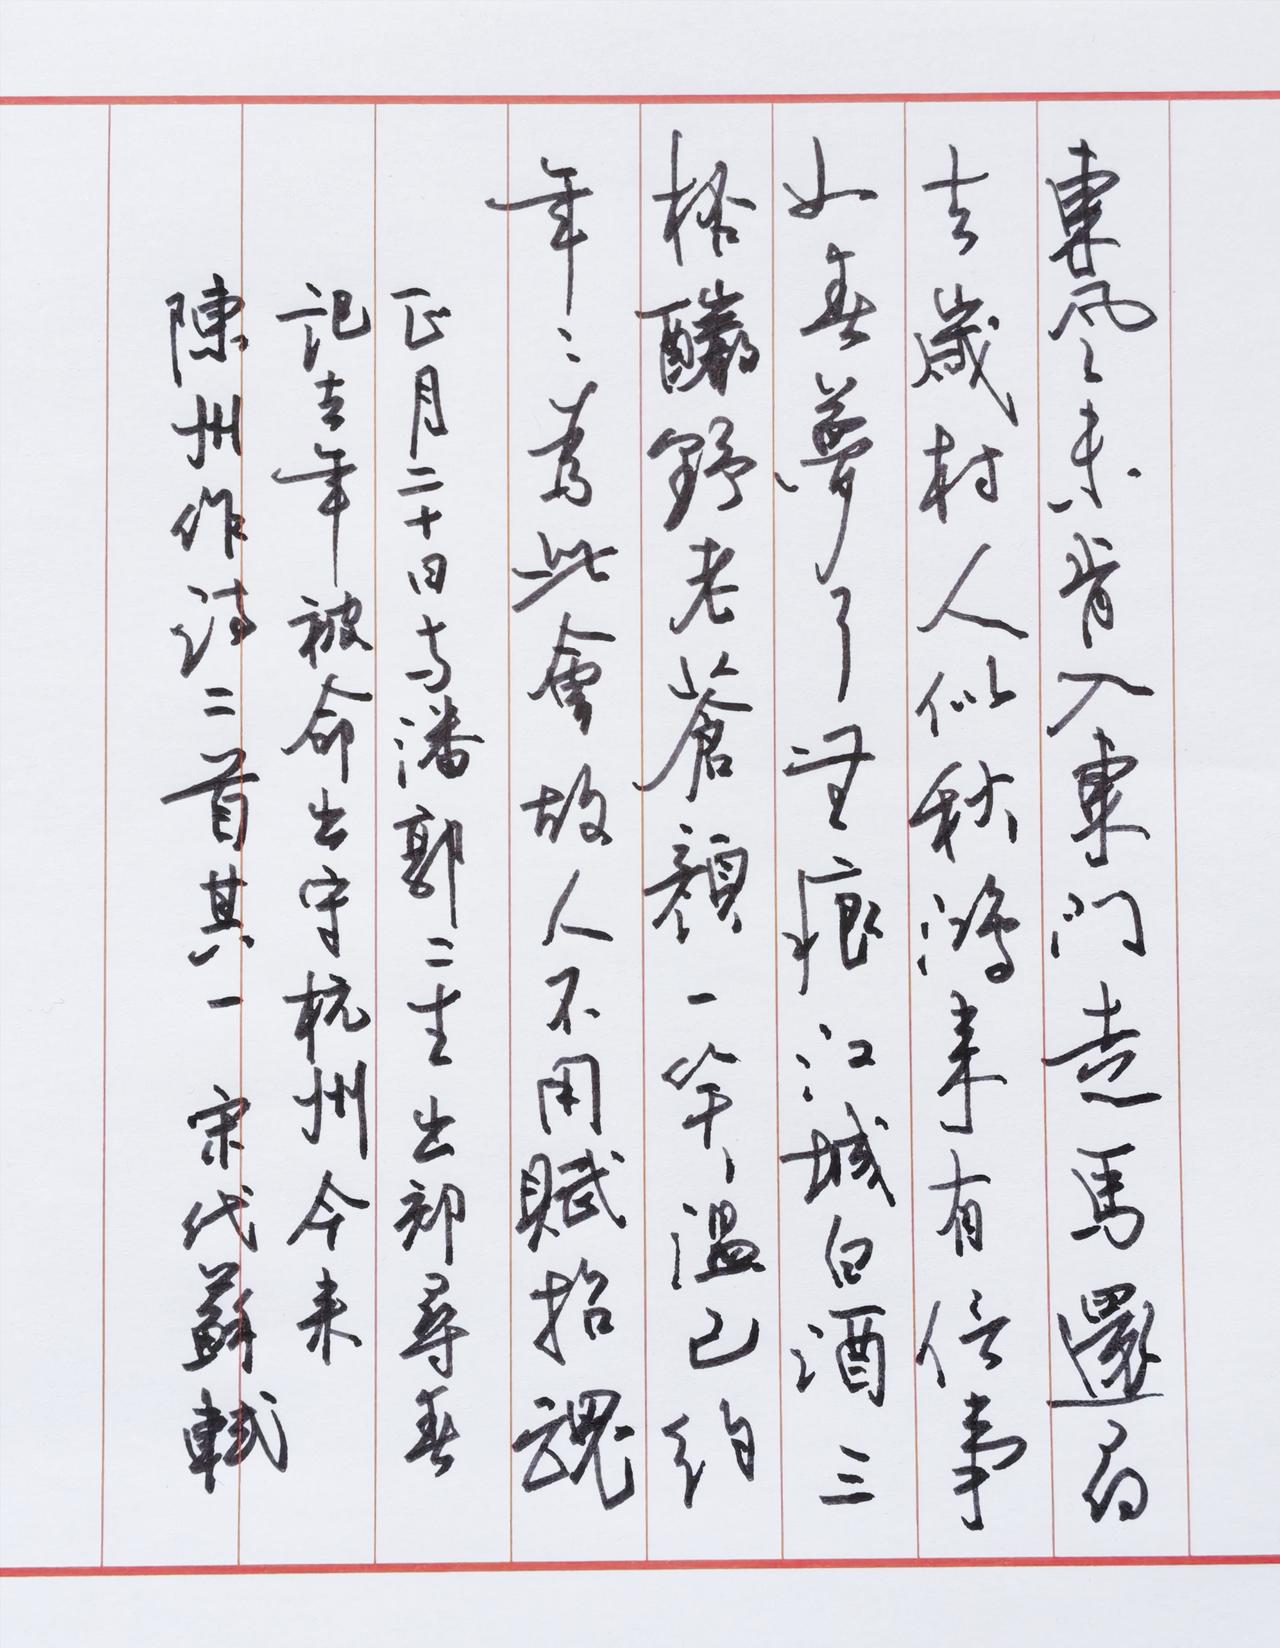 東風未肯入東門走馬還尋
去歲村人似秋鴻来有信事
如春夢了無痕江城白酒三
桮釅野老蒼顏一笑溫已約
年〻為此會故人不用賦招魂
正月二十日与潘郭二生出郊尋春
記去年被命出守杭州今来
陳州作詩二首其一 宋代蘇軾